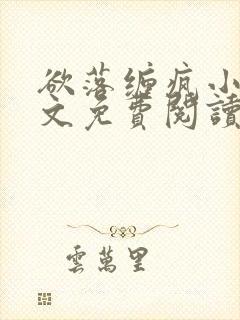 欲落缠疯小
文免費閱讀
雲萬里